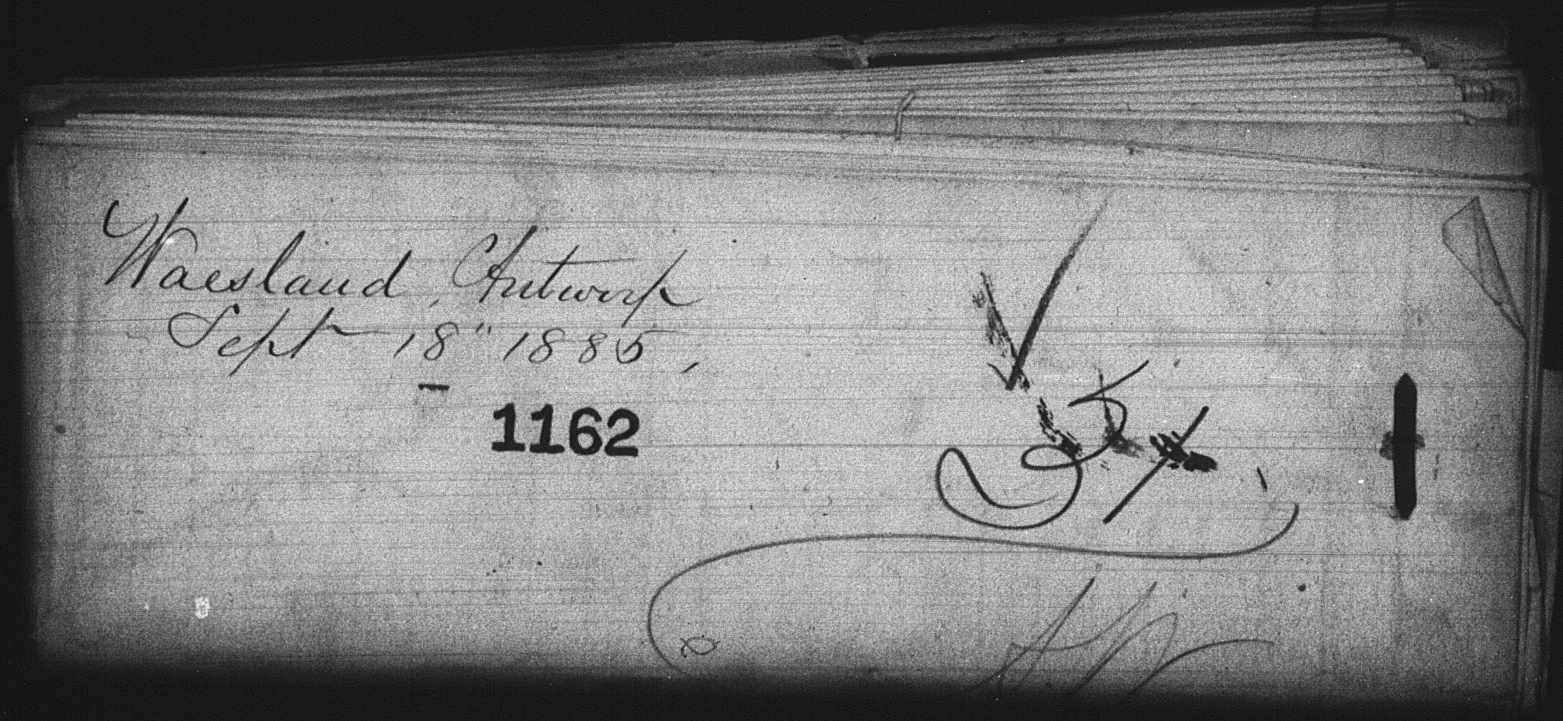 Waesland, Antwerp
Sept 18" 1885,
1162